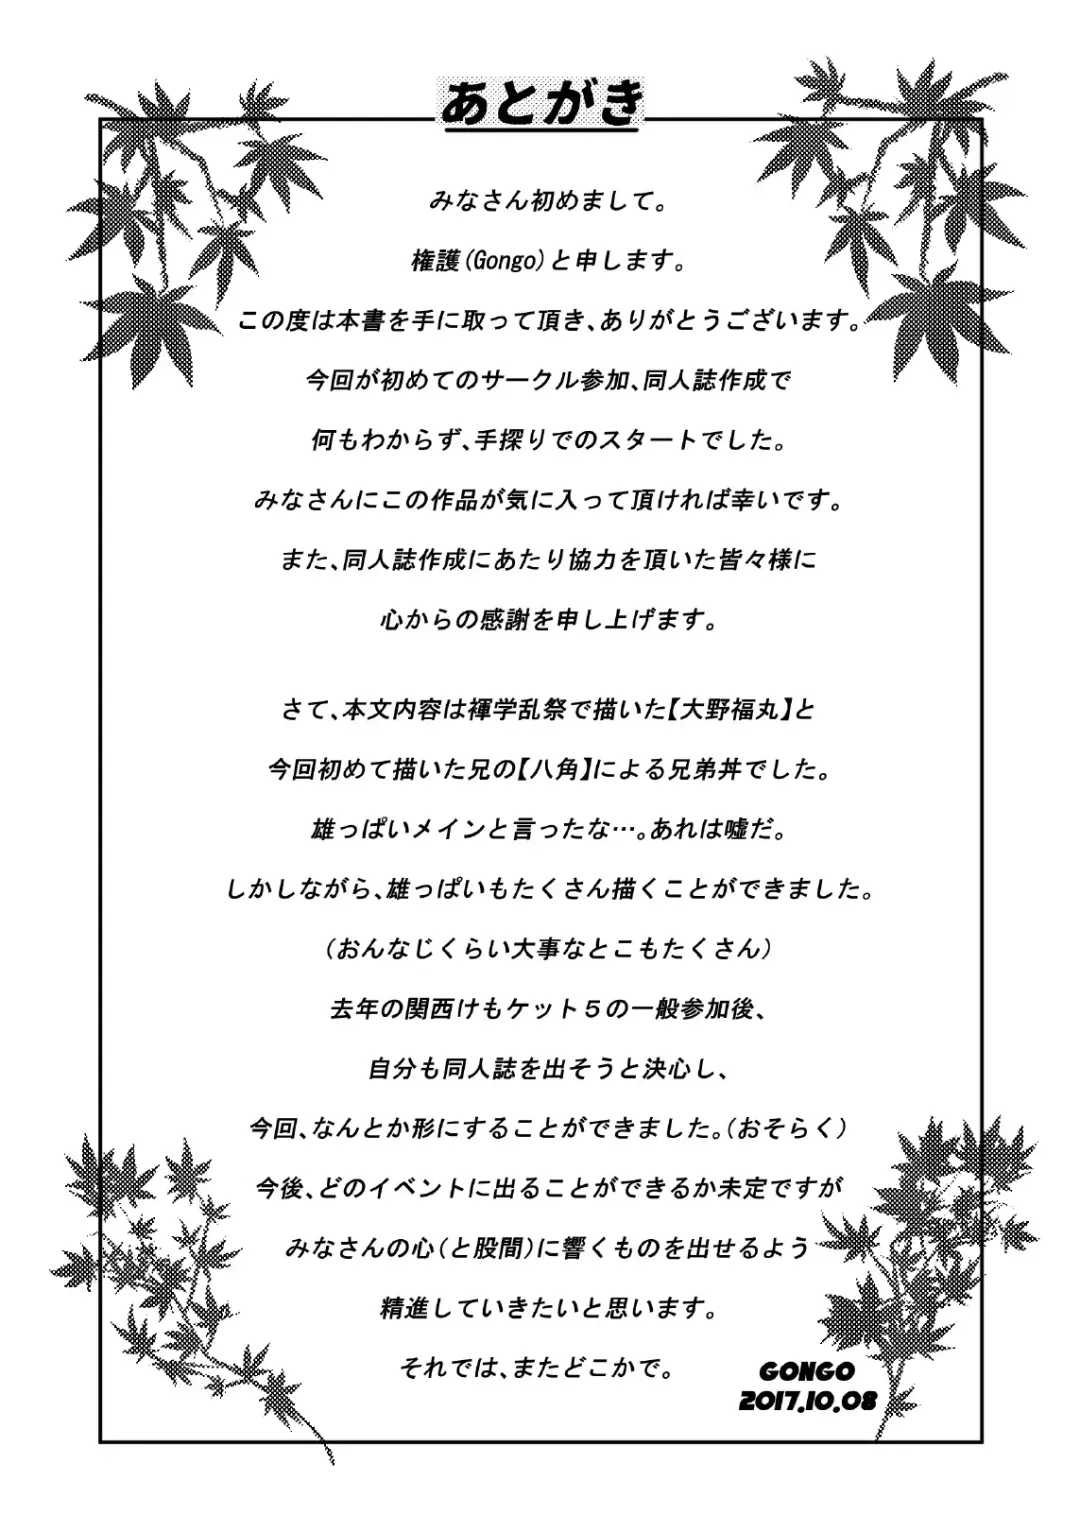 あとがき
みなさん初めまして。
権護(Gongo)と申します。
この度は本書を手に取って頂き、ありがとうございます。
今回が初めてのサークル参加、同人誌作成で
何もわからず、手探りでのスタートでした。
みなさんにこの作品が気に入って頂ければ幸いです。
また、同人誌作成にあたり協力を頂いた皆々様に
心からの感謝を申し上げます。
さて、本文内容は褌学乱祭で描いた【大野福丸】と
今回初めて描いた兄の【八角】による兄弟丼でした。
雄っぱいメインと言ったな…。あれは嘘だ。
しかしながら、雄っぱいもたくさん描くことができました。
(おんなじくらい大事なとこもたくさん)
去年の関西けもケット5の一般参加後、
自分も同人誌を出そうと決心し、
今回、なんとか形にすることができました。(おそらく)
今後、どのイベントに出ることができるか未定ですが
みなさんの心(と股間)に響くものを出せるよう
精進していきたいと思います。
それでは、またどこかで。
GONGO
2017.10.08